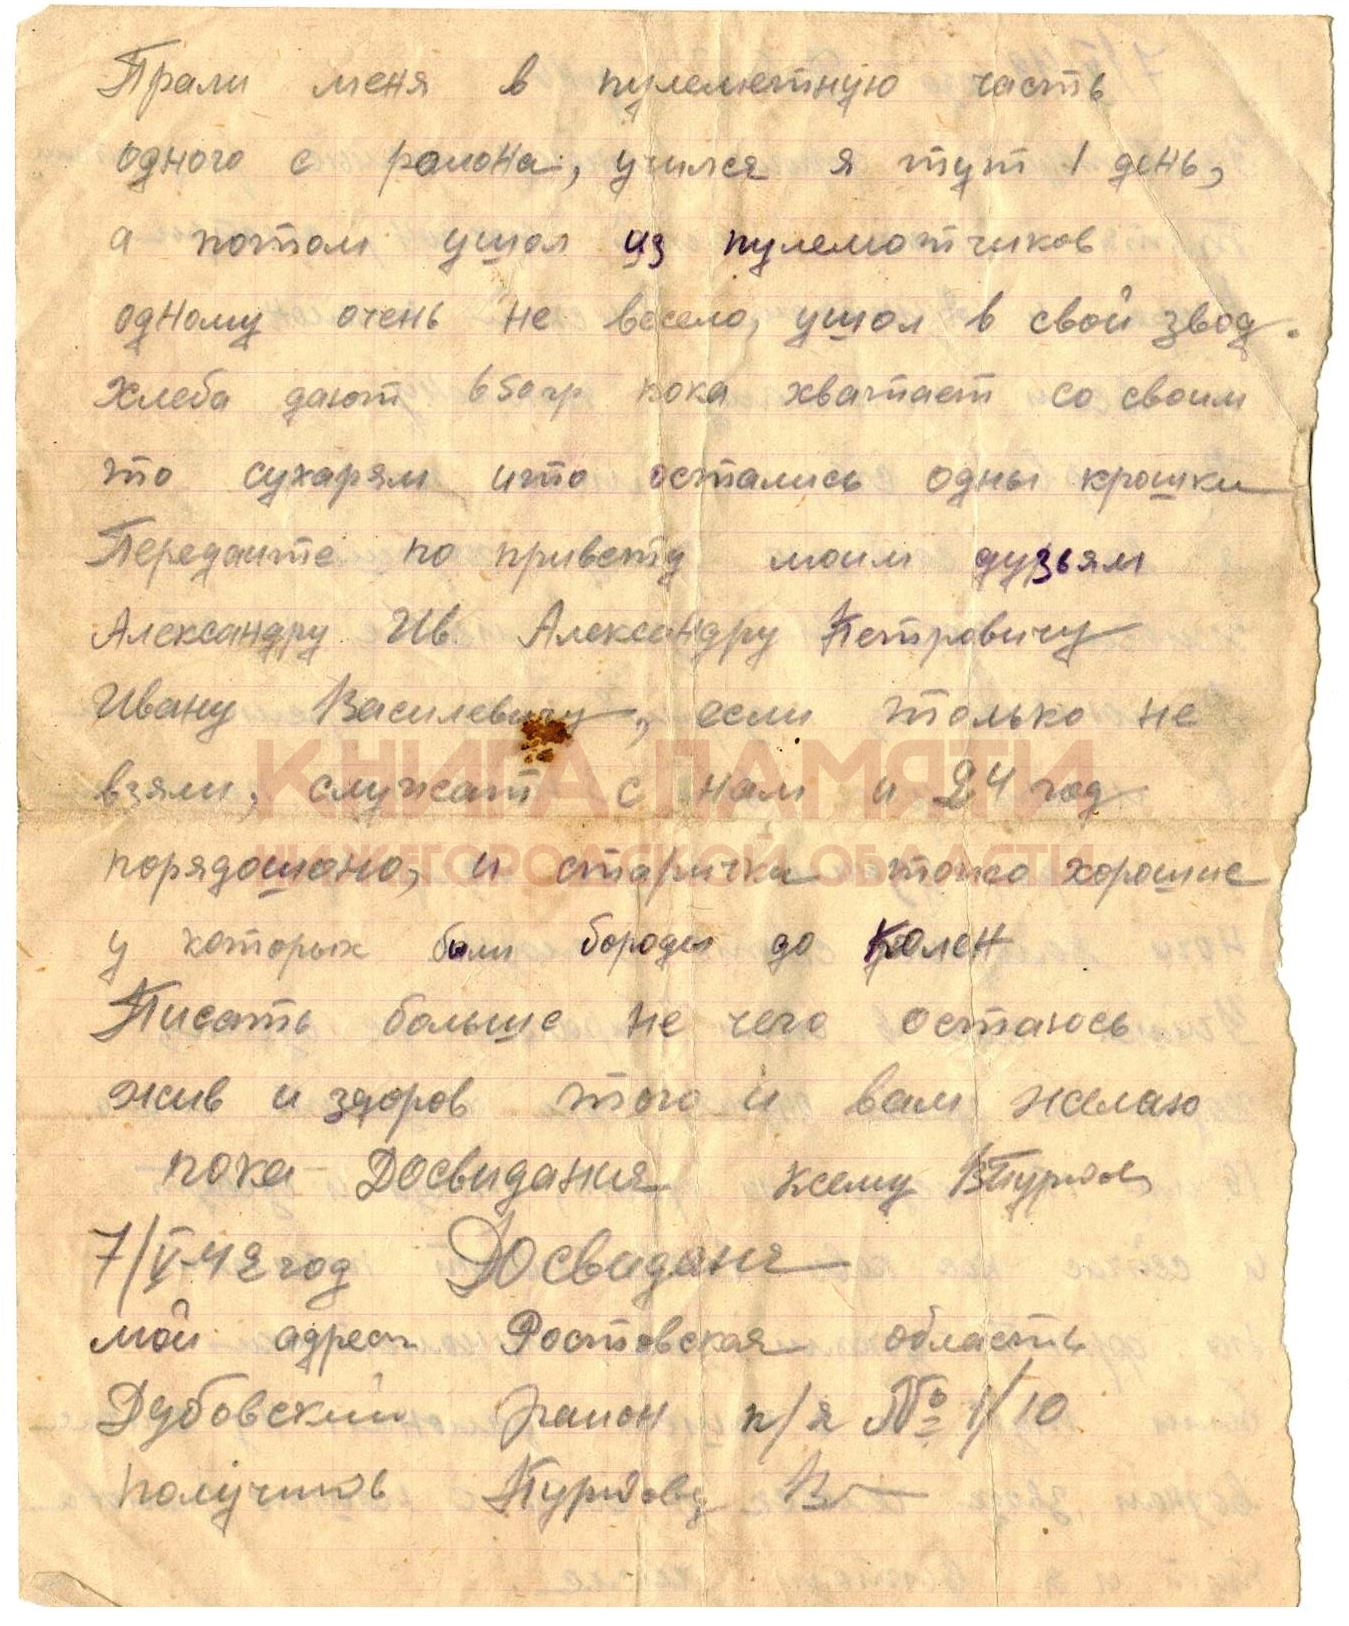 Прали меня в пулеметную часть
одного с ралона, учился я тут 1 день,
а потом ушол из пулемотчиков
одному очень не весело, ушол в свой звод.
Хлеба дают 650 гр пока хватает со своим
что сухарям ито остались одны крошки
Передаите по привету моим дузьям
Александру Ив. Александру Петровичу
Ивану Василевичу, если только не
взяли, служат с нам и 24 год
КНИГА ПАМЯТИ
НИЖЕГОРОДСКОЙ ОБЛАСТИ
порядошоно, и старички тоже хорошие
у которых были бороды до колен
Писать больше не чего остаюсь
жив и здоров того и вам желаю
пока Досвидания к сему
7/V-42 год Досвиданя
мой адрес Ростовская область
Дубовский раион п/я № 1/10
получить В